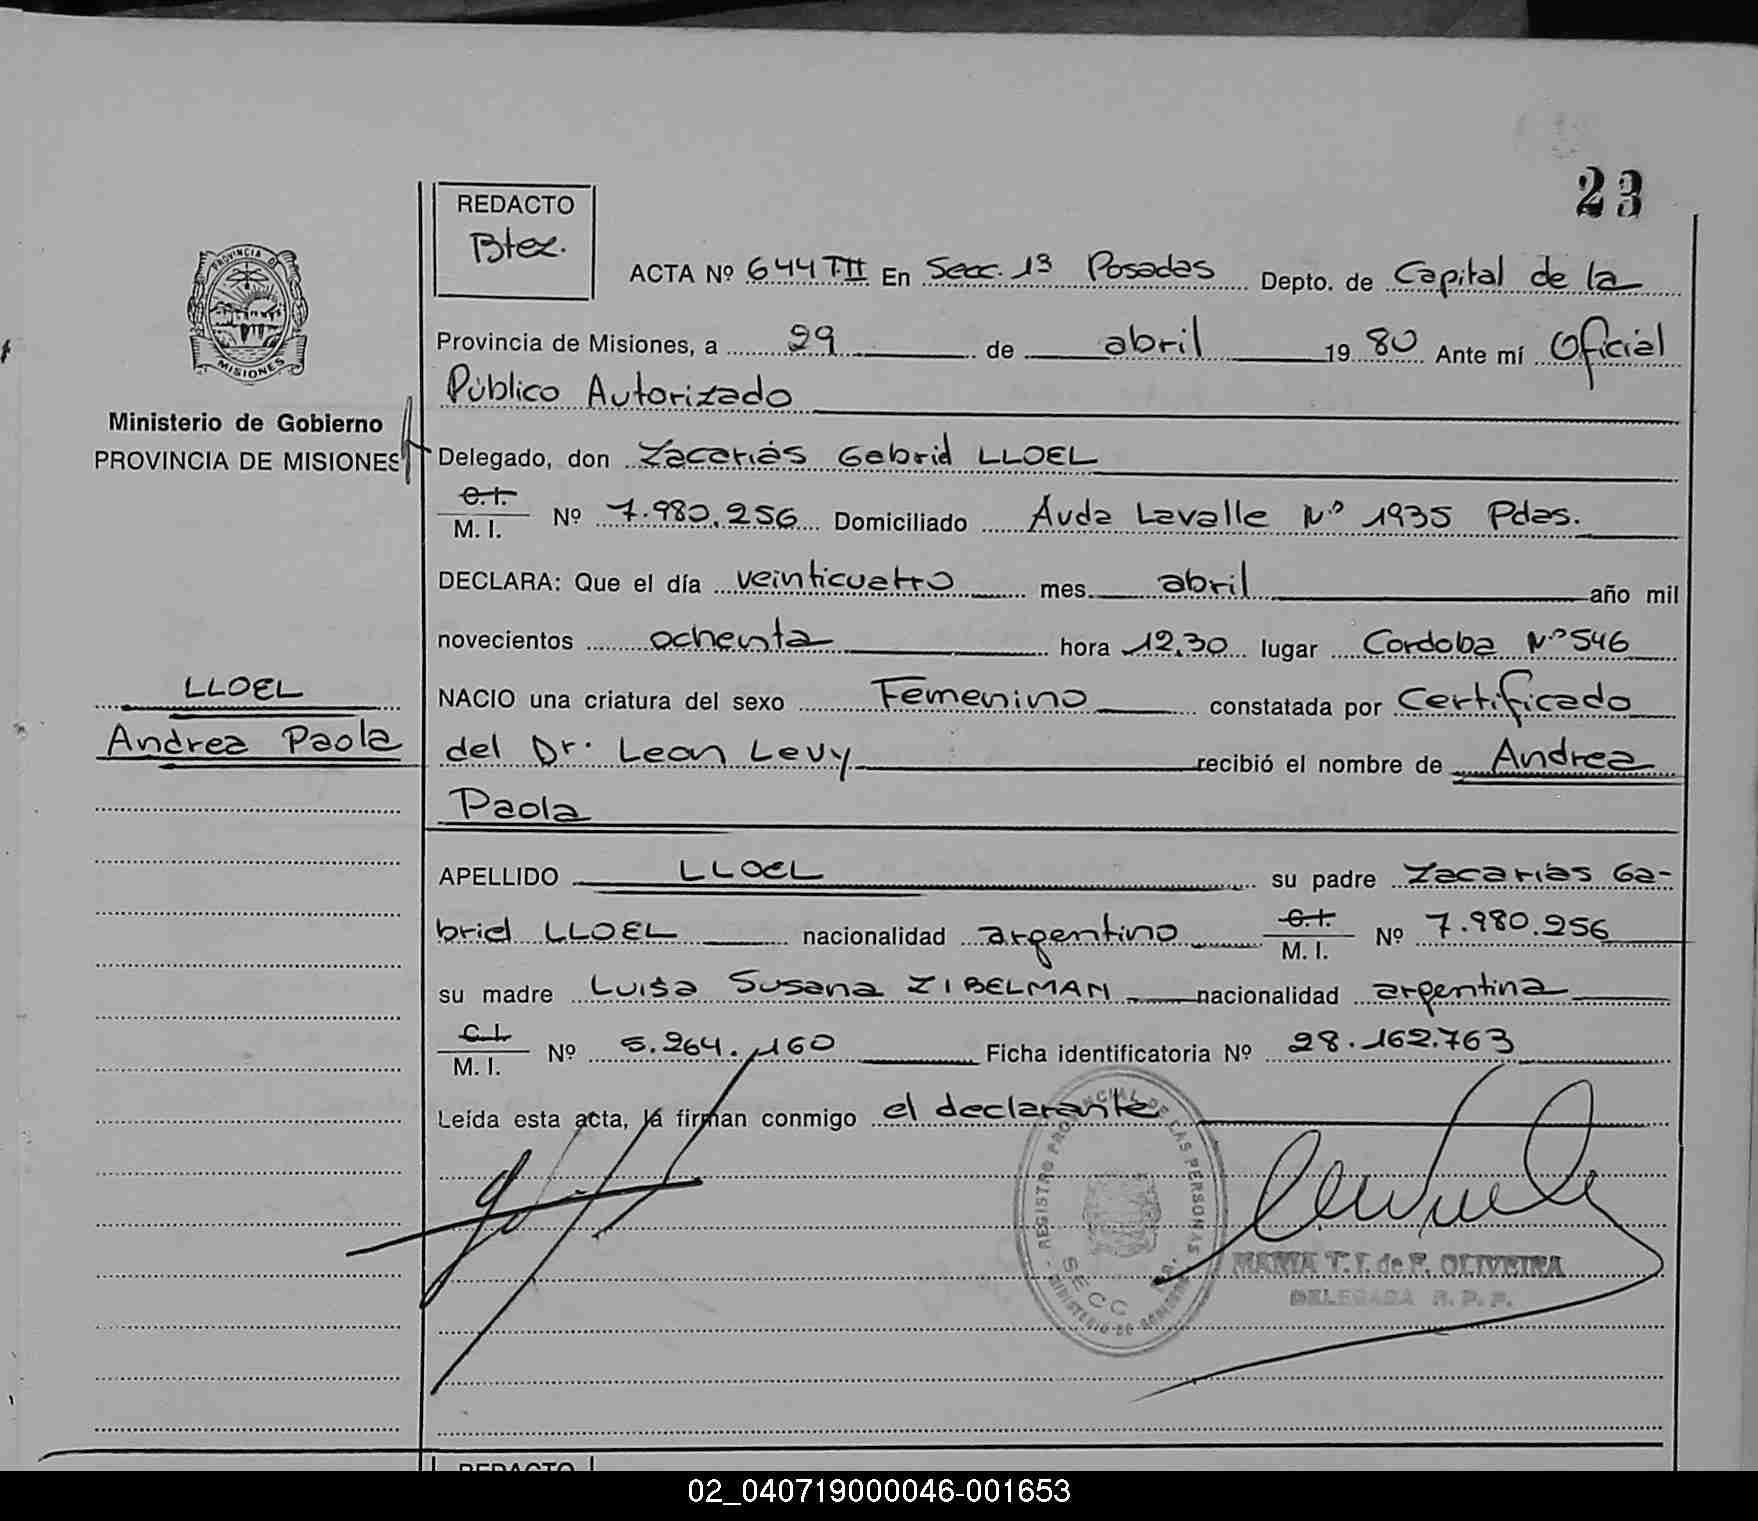 23
REDACTO
Btez.
ACTA Nº 644 T.II En Secc. 1ª Posadas Depto. de Capital de la
PROVINCIA DE
MISIONES
Provincia de Misiones, a 29 de abril 1980 Ante mí Oficial
Público Autorizado
Ministerio de Gobierno
PROVINCIA DE MISIONES
Delegado, don Zacarías Gabriel LLOEL
C.I.
M. I. Nº 7.980.256 Domiciliado Avda Lavalle Nº 1935 Pdas.
DECLARA: Que el día veinticuatro mes abril año mil
novecientos ochenta hora 12,30 lugar Cordoba Nº 546
LLOEL
Andrea Paola
NACIO una criatura del sexo Femenino constatada por Certificado
del Dr. Leon Levy recibió el nombre de Andrea
Paola
APELLIDO LLOEL su padre Zacarías Ga-
briel LLOEL nacionalidad argentino C.I. M. I. Nº 7.980.256
su madre Luisa Susana ZIBELMAN nacionalidad argentina
C.I.
M. I. Nº 5.264.160 Ficha identificatoria Nº 28.162.763
Leída esta acta, la firman conmigo el declarante
REGISTRO PROVINCIAL DE LAS PERSONAS
SECC 1ra.
MINISTERIO DE GOBIERNO
MARIA T. I. de F. OLIVEIRA
DELEGADA R. P. P.
REDACTO
02_040719000046-001653